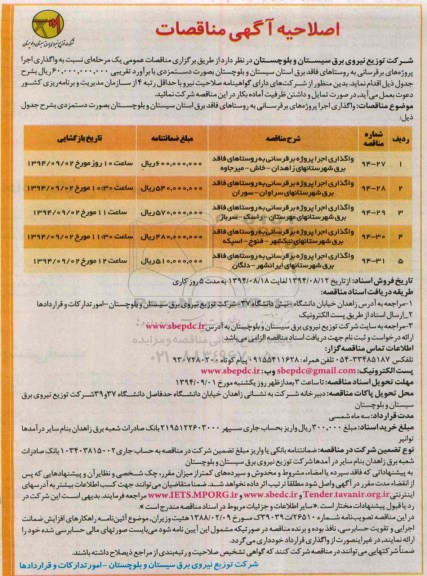 اصلاحیه آگهی مناقصات
شرکت توزیع نیروی برق سیستان و بلوچستان در نظر دارد از طریق برگزاری مناقصات عمومی یک مرحله‌ای نسبت به واگذاری اجرا
پروژه‌های برقرسانی به روستاهای فاقد برق استان سیستان و بلوچستان بصورت دستمزدی با برآورد تقریبی ۶۰,۰۰۰,۰۰۰,۰۰۰ ریال بشرح
جدول ذیل اقدام نماید. بدین منظور از شرکت‌های دارای گواهینامه صلاحیت نیرو با حداقل رتبه ۴ از سازمان مدیریت و برنامه‌ریزی کشور
دعوت بعمل می‌آید، در صورت تمایل و داشتن ظرفیت آماده بکار در این مناقصه شرکت نمائید.
موضوع مناقصات: واگذاری اجرا پروژه‌های برقرسانی به روستاهای فاقد برق استان سیستان و بلوچستان بصورت دستمزدی بشرح جدول
ذیل:
ردیف شماره مناقصه شرح مناقصه مبلغ ضمانتنامه تاریخ بازگشایی
۱ ۹۴-۲۷ واگذاری اجرا پروژه برقرسانی به روستاهای فاقد برق شهرستانهای زاهدان - خاش - میرجاوه ۶۰۰,۰۰۰,۰۰۰ ریال ساعت ۱۰ روز مورخ ۱۳۹۴/۰۹/۰۲
۲ ۹۴-۲۸ واگذاری اجرا پروژه برقرسانی به روستاهای فاقد برق شهرستانهای سراوان - سوران ۵۴۰,۰۰۰,۰۰۰ ریال ساعت ۱۰:۳۰ مورخ ۱۳۹۴/۰۹/۰۲
۳ ۹۴-۲۹ واگذاری اجرا پروژه برقرسانی به روستاهای فاقد برق شهرستانهای مهرستان - راسک - سرباز ۵۷۰,۰۰۰,۰۰۰ ریال ساعت ۱۱ مورخ ۱۳۹۴/۰۹/۰۲
۴ ۹۴-۳۰ واگذاری اجرا پروژه برقرسانی به روستاهای فاقد برق شهرستانهای نیکشهر - فنوج - اسپکه ۴۸۰,۰۰۰,۰۰۰ ریال ساعت ۱۱:۳۰ مورخ ۱۳۹۴/۰۹/۰۲
۵ ۹۴-۳۱ واگذاری اجرا پروژه برقرسانی به روستاهای فاقد برق شهرستانهای ایرانشهر - دلگان ۵۱۰,۰۰۰,۰۰۰ ریال ساعت ۱۲ مورخ ۱۳۹۴/۰۹/۰۲
تاریخ فروش اسناد: از تاریخ ۱۳۹۴/۰۸/۱۲ لغایت ۱۳۹۴/۰۸/۱۸ به مدت ۵ روز کاری
طریقه دریافت اسناد مناقصه:
۱- مراجعه به آدرس زاهدان خیابان دانشگاه - نبش دانشگاه ۳۷ - شرکت توزیع نیروی برق سیستان و بلوچستان - امور تدارکات و قراردادها
۲- ارسال اسناد از طریق پست الکترونیک
۳- مراجعه به سایت شرکت توزیع نیروی برق سیستان و بلوچستان به آدرس www.sbepdc.ir
ارائه درخواست و ثبت نام جهت دریافت اسناد مناقصه الزامی می‌باشد
اطلاعات تماس مناقصه گزار:
تلفکس ۳۳۴۴۵۱۸۷-۰۵۴ تلفن همراه: ۰۹۱۵۵۴۱۱۶۲۸ پیام کوتاه: ۹۳۰۷۲۸۰۲۰۰
پست الکترونیک: sbepdc@gmail.com وب: www.sbepdc.ir
مهلت تحویل اسناد مناقصه: تا ساعت ۳ بعدازظهر روز یکشنبه مورخ ۱۳۹۴/۰۹/۰۱
محل تحویل پاکات مناقصه: دبیرخانه شرکت به نشانی زاهدان خیابان دانشگاه حدفاصل دانشگاه ۳۷ و ۳۹ شرکت توزیع نیروی برق
سیستان و بلوچستان
مدت قرارداد: سه ماه شمسی
مبلغ خرید اسناد: مبلغ ۳۰۰,۰۰۰ ریال واریز بحساب جاری سپهر بانک صادرات شعبه برق زاهدان بنام سایر درآمدها
توانیر
نوع تضمین شرکت در مناقصه: ضمانتنامه بانکی یا واریز مبلغ تضمین شرکت در مناقصه به حساب جاری بانک صادرات
شعبه برق زاهدان بنام سایر درآمدها شرکت توزیع نیروی برق سیستان و بلوچستان
به پیشنهاداتی که فاقد سپرده یا امضاء، مشروط و مخدوش و سپرده‌های کمتر از میزان مقرر، چک شخصی و نظایر آن و پیشنهادهایی که پس
از انقضاء مدت مقرر در آگهی واصل شود مطلقاً ترتیب اثر داده نخواهد شد. ضمناً متقاضیان می‌توانند جهت کسب اطلاعات بیشتر به آدرسهای
اینترنتی Tender.tavanir.org.ir و www.sbedc.ir و www.IETS.MPORG.ir مراجعه فرمایند. بدیهی است این شرکت در
رد یا قبول پیشنهادات مختار است. سایر اطلاعات و جزئیات مربوط در اسناد مناقصه مندرج است.
در این مناقصه تصویب‌نامه شماره مورخ ۱۳۸۸/۰۲/۰۹ هیئت وزیران، موضوع آئین‌نامه راهکارهای افزایش ضمانت
اجرایی و تقویت حسابرسی، نافذ بوده و برنده مناقصه در صورتیکه مشمول این آیین نامه شود می‌بایست صورتهای مالی حسابرسی شده خود را
ارائه نمایند، در غیر اینصورت از واگذاری قرارداد خودداری می‌گردد.
ضمناً شرکتهایی می‌توانند در مناقصه شرکت کنند که گواهی تشخیص صلاحیت و رتبه‌بندی از مراجع ذیصلاح داشته باشند.
شرکت توزیع نیروی برق سیستان و بلوچستان - امور تدارکات و قراردادها